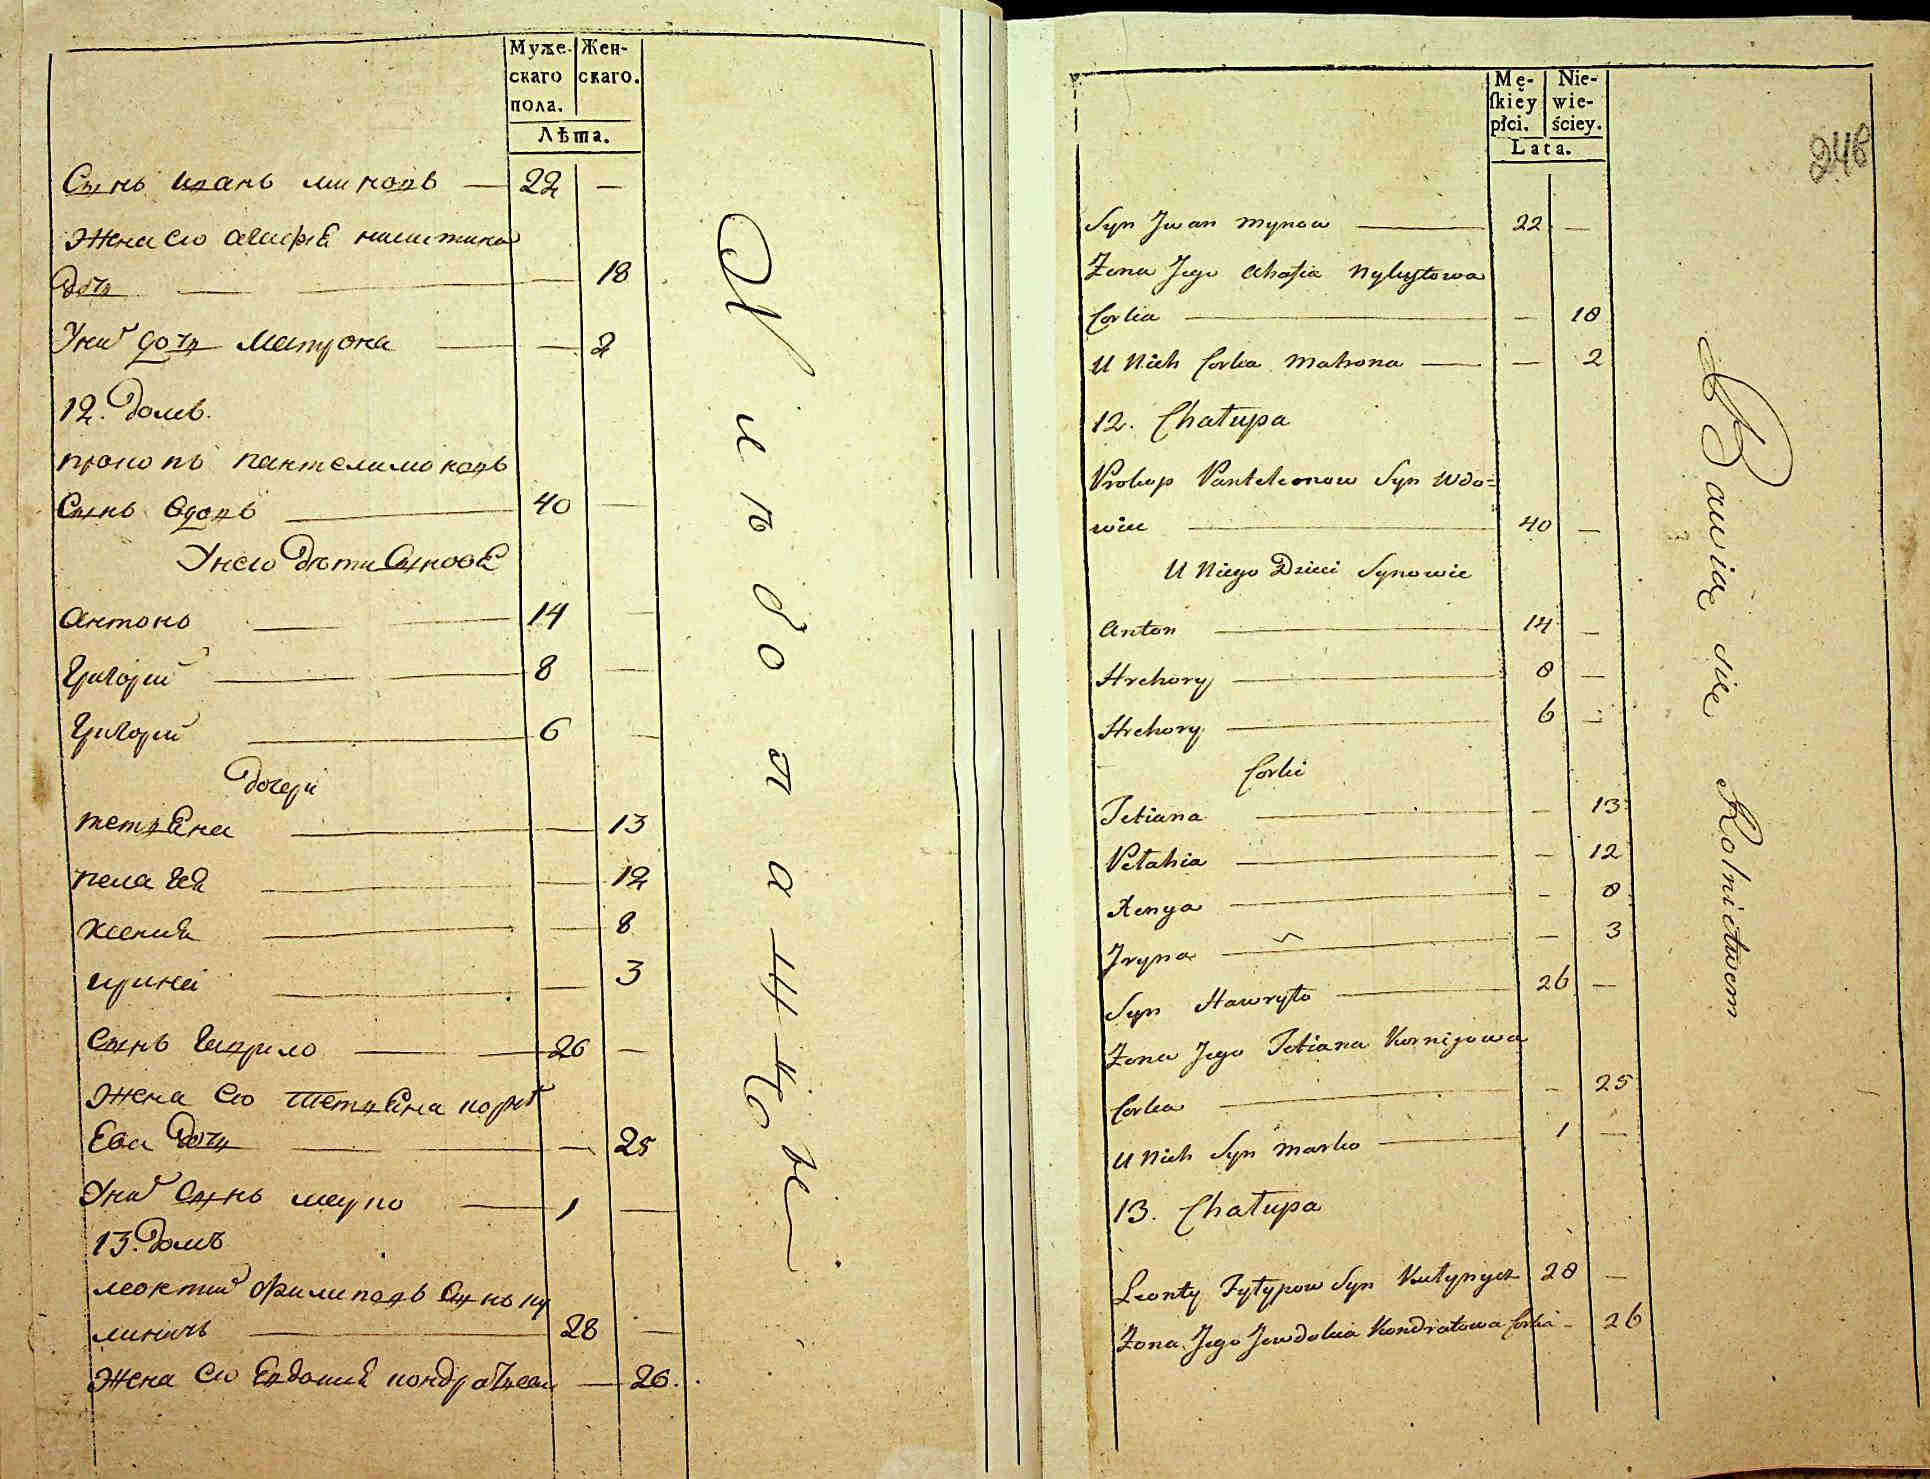 Муже- Жен-
скаго скаго.
пола.
Лѣта.
Сынъ Иванъ Миновъ — 22 —
Жена его Агафія Никитина
дочь — — 18
Унихъ дочь Матрона — — 2
12. домъ.
Прокопъ Пантелимоновъ
Сынъ вдовъ — 40 —
Унего дѣти Сыновѣ
Антонъ — 14 —
Григорій — 8 —
Григорій — 6 —
дочери
Тетяна — — 13
Пелагея — — 12
Ксения — — 8
Ирина — — 3
Сынъ Гаврило — 26 —
Жена его Тетяна Корнѣ
ева дочь — — 25
Унихъ Сынъ Марко — 1 —
13. домъ
Леонтий Филиповъ Сынъ Ку
линичъ — 28 —
Жена его Евдокия Кондратьева — 26.
Хлебопашцы
Mę- Nie-
ſkiéy wie-
płci. ściey.
Lata.
246
Syn Jwan Mynow — 22 —
Żona Jego Ahafia Nykytowa
Corka — — 18
U Nich Corka Matrona — — 2
12. Chałupa
Prokop Panteleonow Syn Wdo=
wiec — 40 —
U Niego Dzieci Synowie
Anton — 14 —
Hrehory — 8 —
Hrehory — 6 —
Corki
Tetiana — — 13
Pełahia — — 12
Xenya — — 8
Jryna — — 3
Syn Hawryło — 26 —
Żona Jego Tetiana Kornijowa
Corka — — 25
U Nich Syn Marko — 1 —
13. Chałupa
Leonty Fyłypow Syn Kułynycz 28 —
Żona Jego Jewdokia Kondratowa Corka — 26
Bawią się Rolnictwem